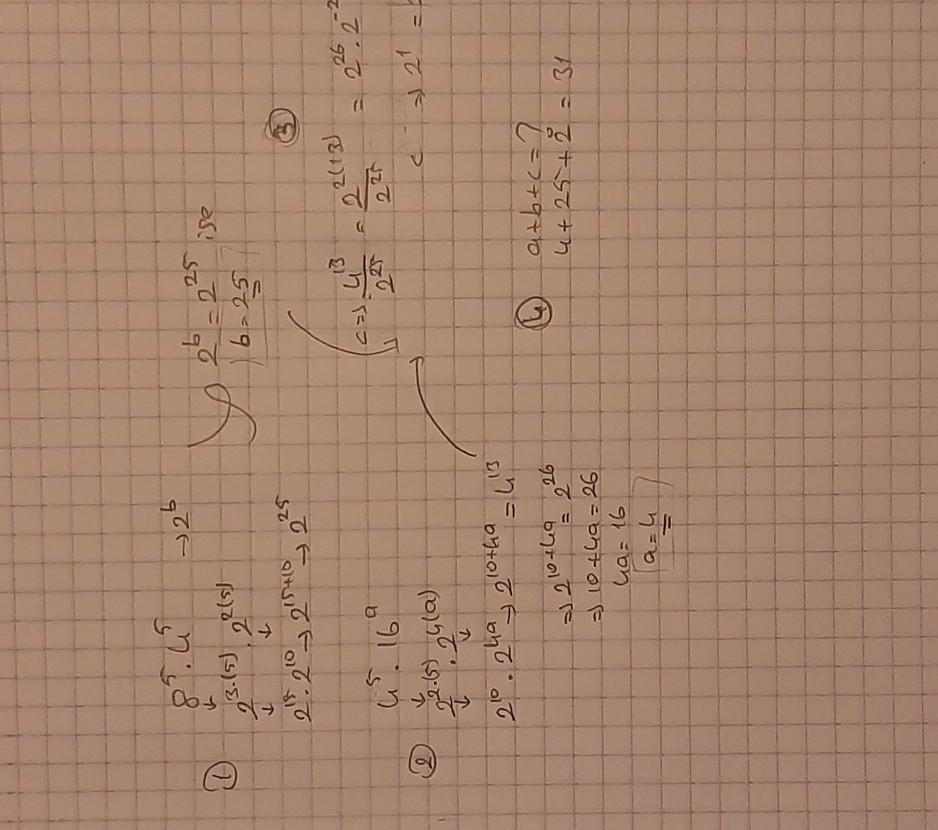 ① 8⁵ . 4⁵ → 2ᵇ
↓
2³·⁽⁵⁾ . 2²⁽⁵⁾
↓ ↓
2¹⁵ . 2¹⁰ → 2¹⁵⁺¹⁰ → 2²⁵
2ᵇ = 2²⁵ ise
b = 25
② 4⁵ . 16ᵃ
↓
2²·⁽⁵⁾ . 2⁴⁽ᵃ⁾
↓ ↓
2¹⁰ . 2⁴ᵃ → 2¹⁰⁺⁴ᵃ = 4¹³
⇒ 2¹⁰⁺⁴ᵃ = 2²⁶
⇒ 10+4a = 26
4a = 16
a = 4
③
c ⇒ 4¹³/2²⁵ = 2²⁽¹³⁾/2²⁵ = 2²⁶ . 2⁻²
c ⇒ 2¹ =
④ a+b+c = ?
4 + 25 + 2 = 31